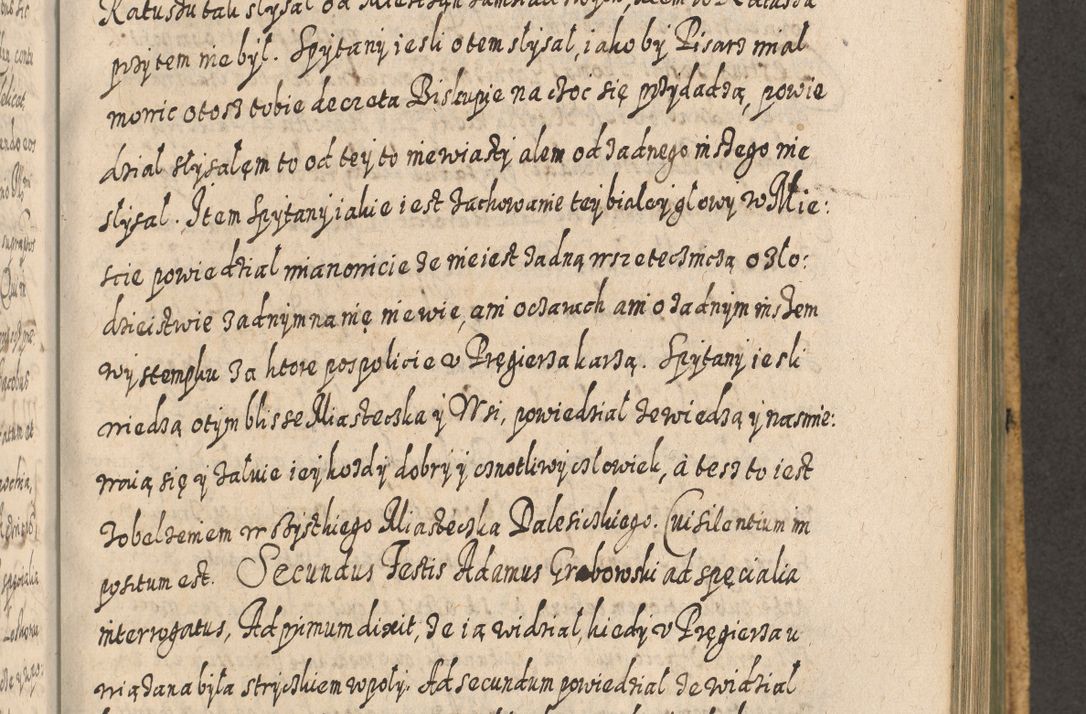 Ratuszu tak słysał od Mieszczyn
przytem nie był. Spytany iesli otem słysał, iakoby Pisarz miał
mowic otosz tobie decreta Biskupie na choc się przydadzą, powie
dział słysałem to od tey to niewiasty alem od zadnego inszego nie
słysał. Item spytany iakie iest zachowanie tey białey głowy w Mie:
scie powiedział mianowicie ze nieiest zadną wszetecznicą o zło:
dzieistwie zadnym na nię niewie, ani oczarach ani o zadnym inszem
wystempku za ktore pospolicie v Pręgierza karzą. Spytany iesli
wiedzą otym blisse Miasteczka y Wsi, powiedział ze wiedzą y nasmie:
waią się y załuie iey kozdy dobry y cnotliwy człowiek, à tesz to iest
zobelzeniem wszystkiego Miasteczka Daleszickiego. Cui silentium im
positum est. Secundus Testis Adamus Grabowski ad spęcialia
interrogatus, Ad primum dixit, ze ią widział, kiedy v Pręgierza u
wiązana była stryczkiem wpoły. Ad secundum powiedział ze widział